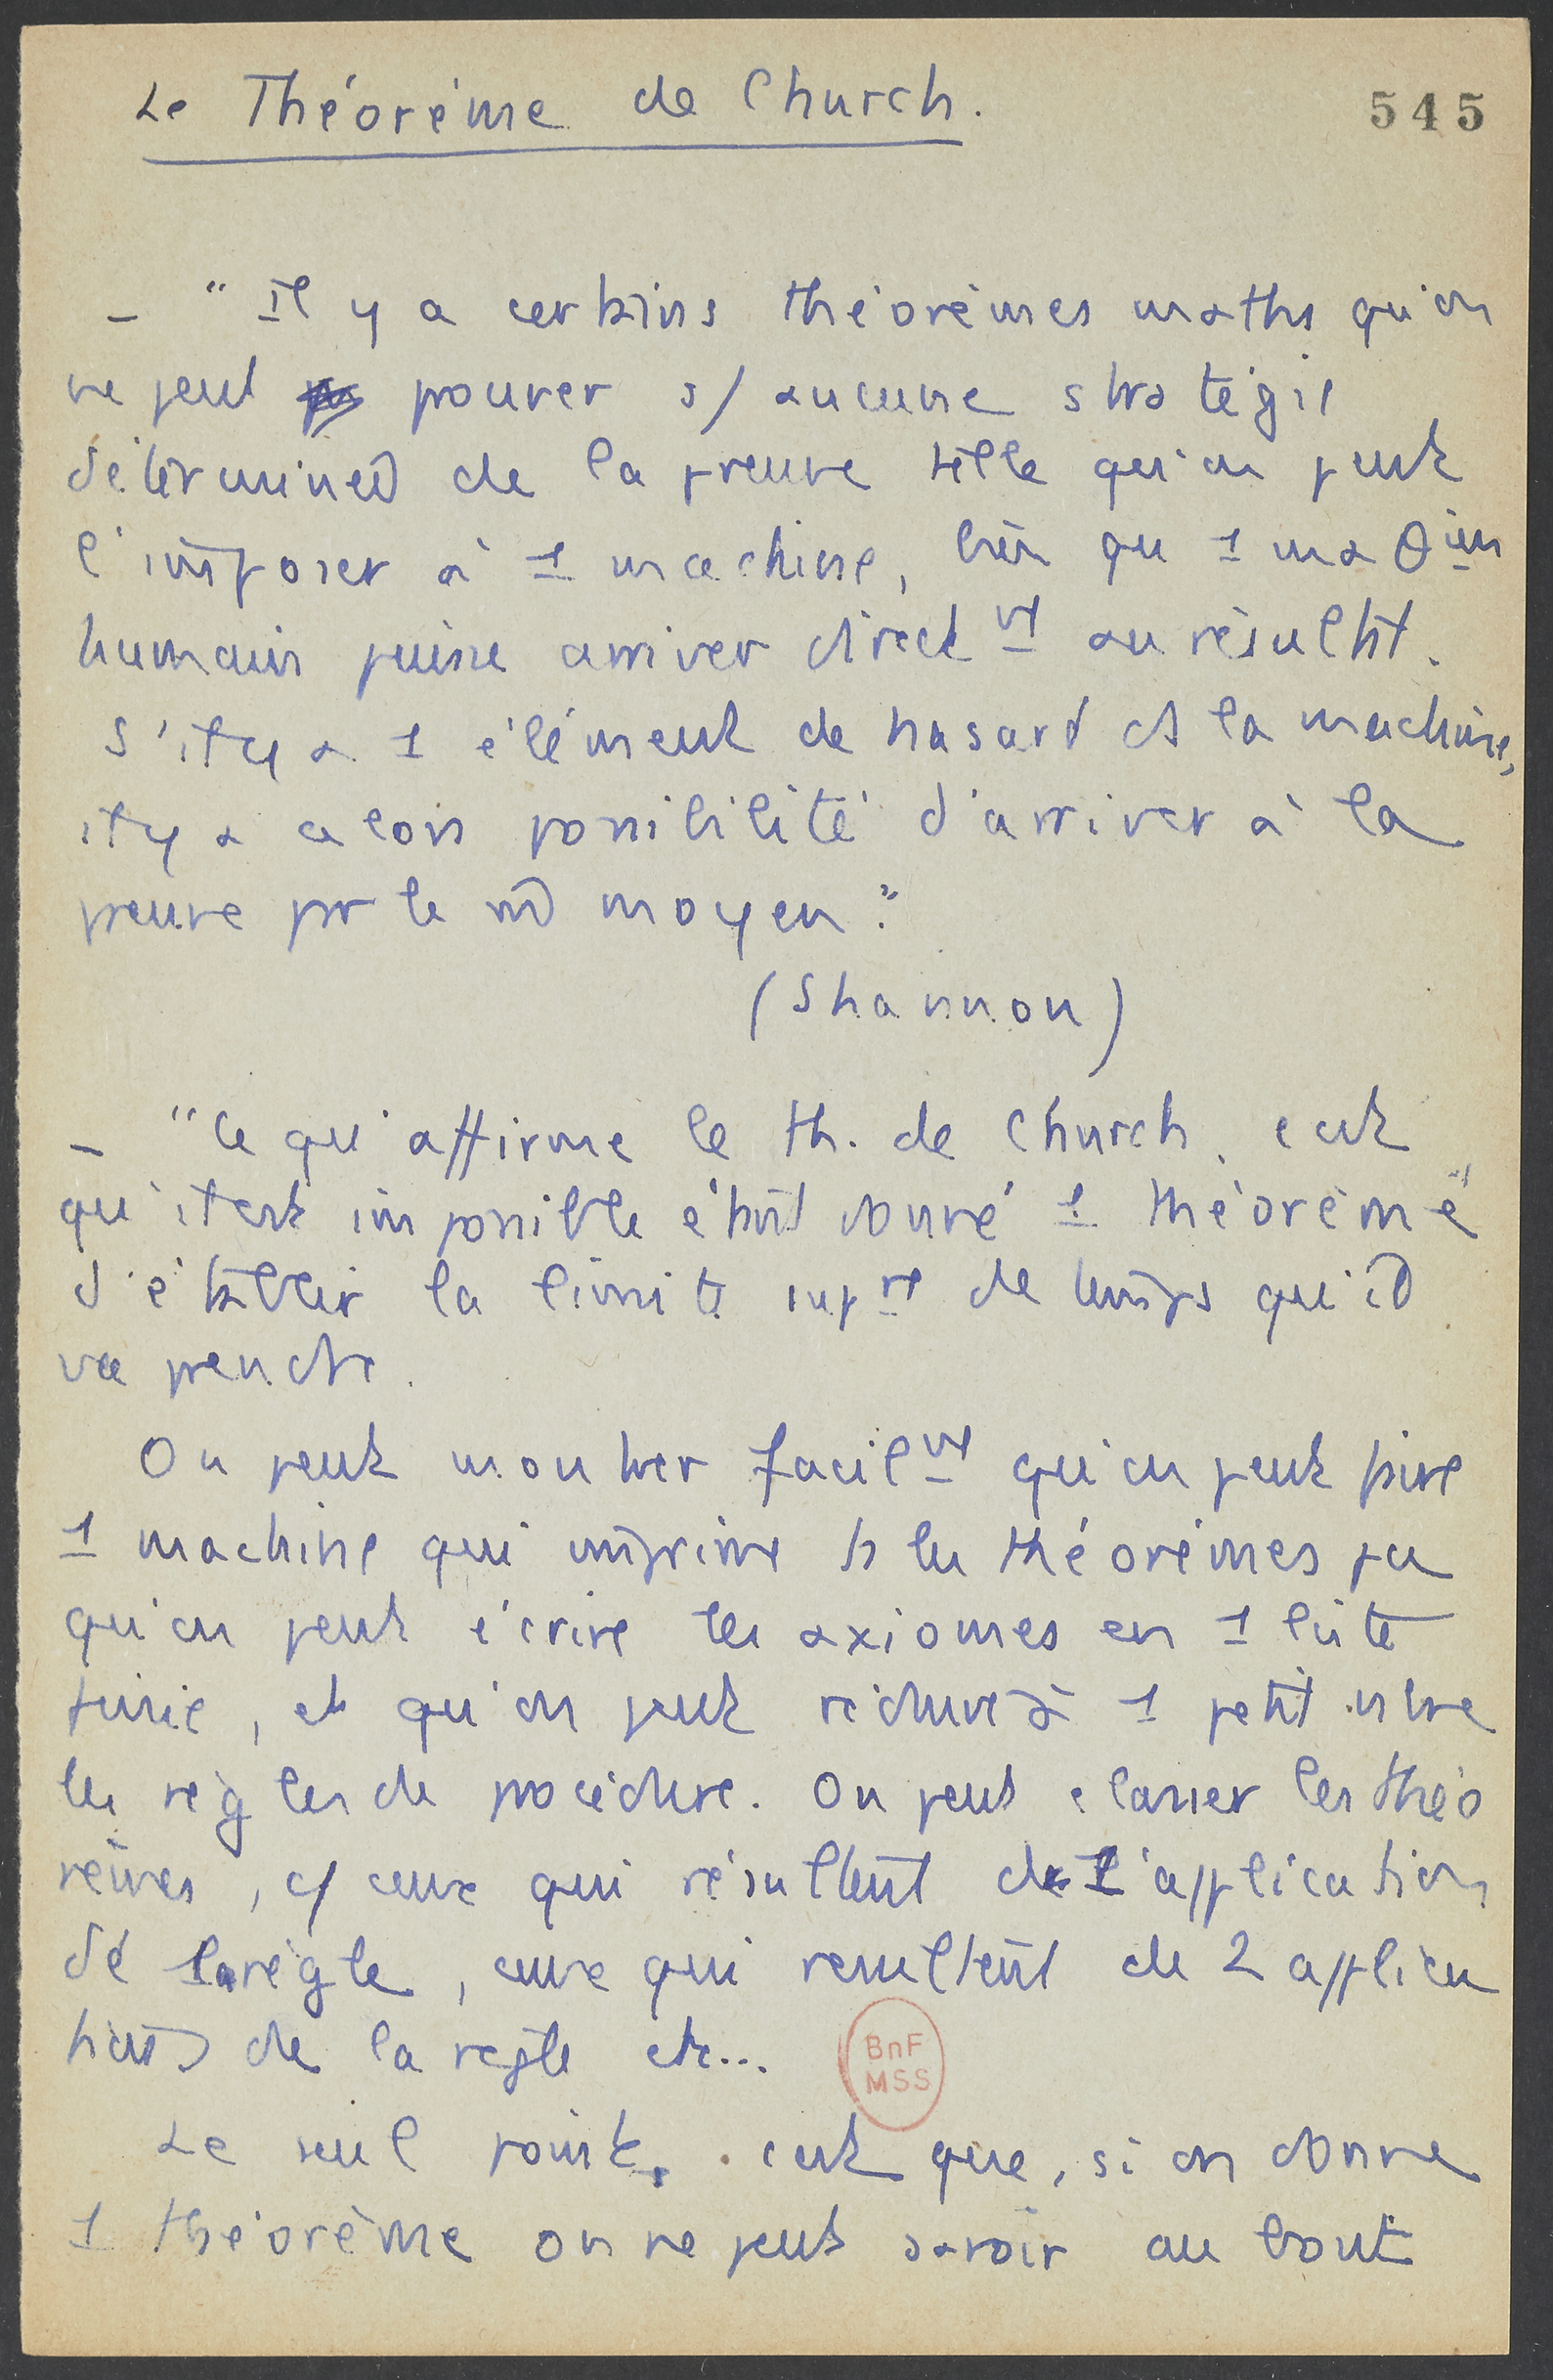 Le Théorème de Church.
545
– "Il y a certains théorèmes maths qu'on
ne peut prouver s/ aucune stratégie
déterminée de la preuve telle qu'on peut
l'imposer à 1 machine, bien qu 1 maθien
humain puisse arriver directnt au résultat.
S'il y a 1 élément de hasard ds la machine,
il y a alors possibilité d'arriver à la
preuve par le m̂ moyen."
(Shannon)
– "Ce qu'affirme le th. de Church, c'est
qu'il est impossible étant donné 1 "théorème"
d'établir la limite supre de temps qu'il
va prendre.
On peut montrer facilnt qu'on peut faire
1 machine qui imprime ts les théorèmes pce
qu'on peut écrire les axiomes en 1 liste
finie, et qu'on peut réduire à 1 petit nbre
les règles de procédure. On peut classer les théo
rèmes, c/ ceux qui résultent de l'application
dé la règle, ceux qui resultent de 2 applica
tions de la règle etc...
Le seul point, c'est que, si on donne
1 théorème on ne peut savoir au bout
BnF
MSS